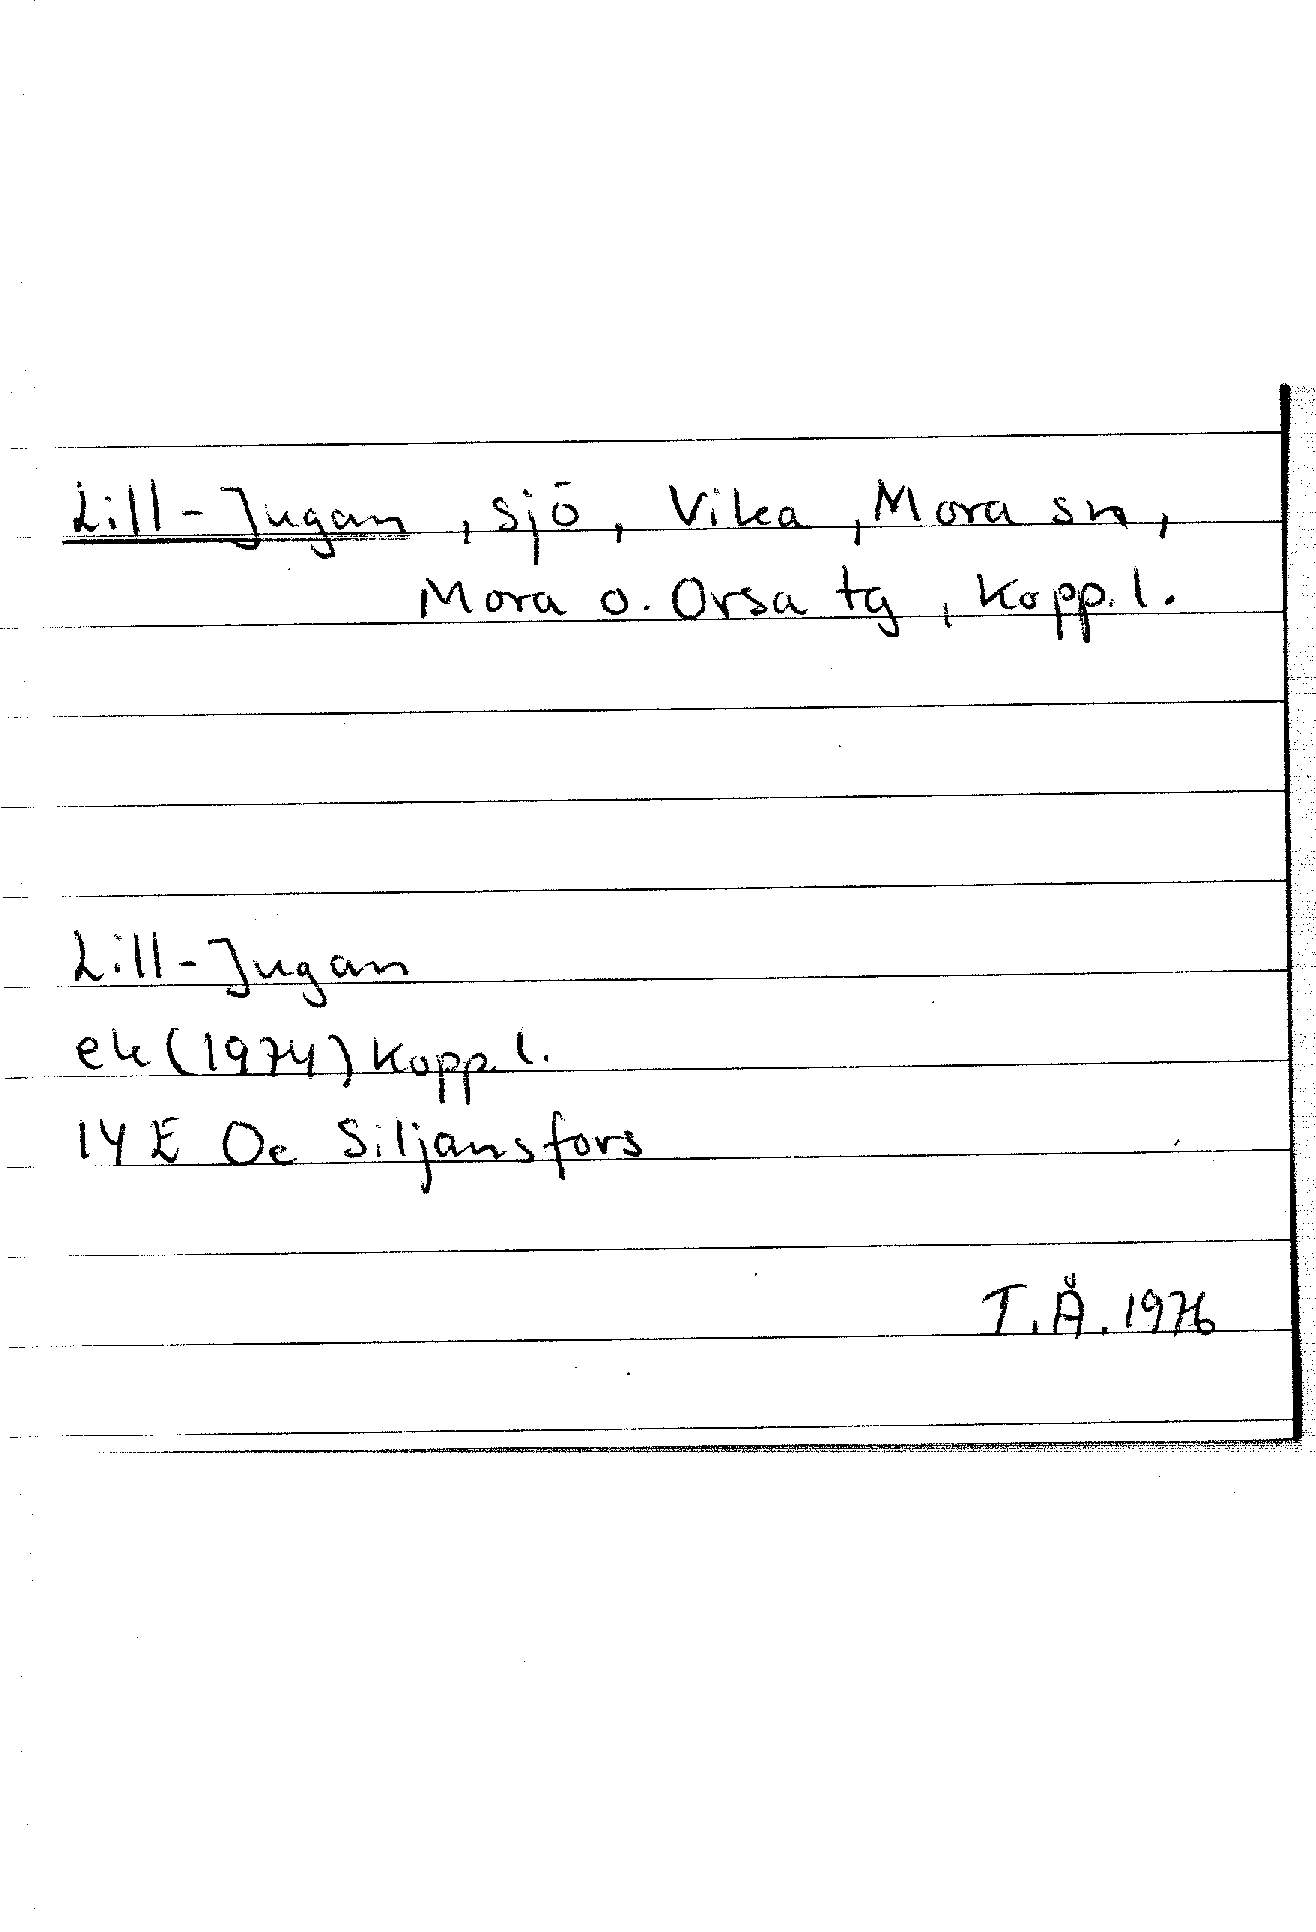 Lill-Jugan, sjö, Vika, Mora sn,
Mora o. Orsa tg, Kopp. l.
Lill-Jugan
ek (1974) Kopp. l.
14 E Oc Siljansfors
T.Å. 1976